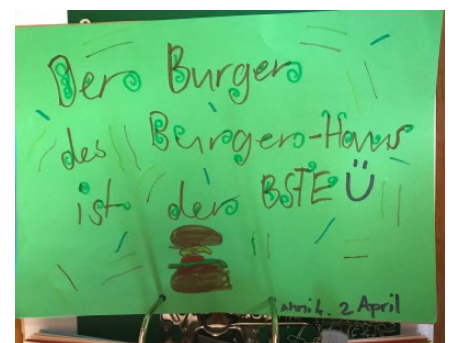 Der Burger
des Burger-Haus
ist der BSTE Ü
2 April